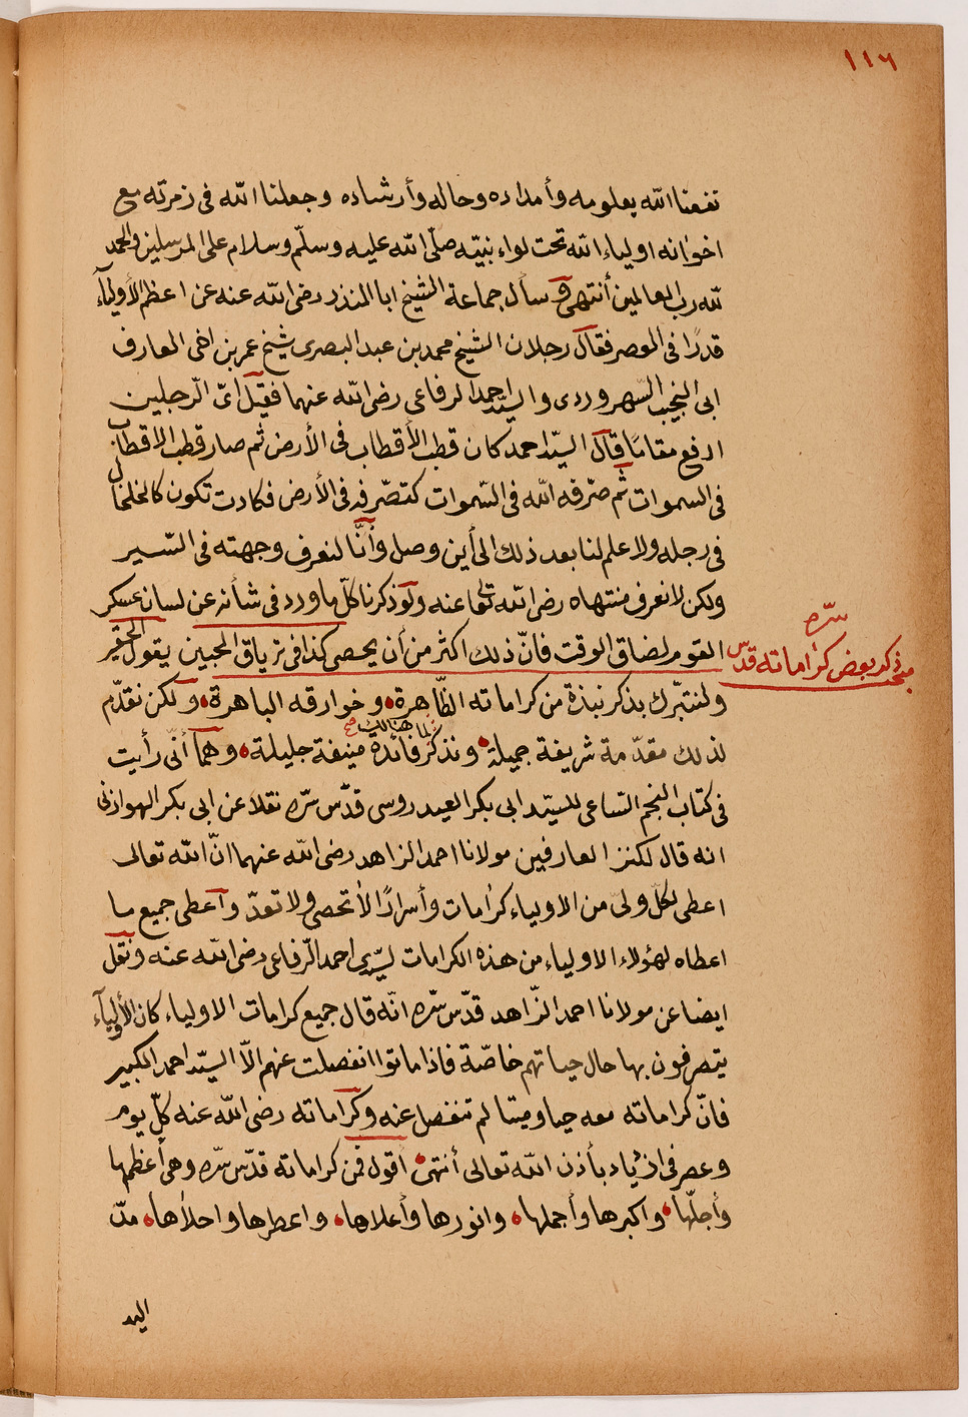 ١١٦
نفعنا الله بعلومه وأمداده وحاله وأرشاده وجعلنا الله فى زمرته مع
اخوانه اولياء الله تحت لواء نبيّه صلّى الله عليه وسلّم وسلام على المرسلين والحمد
لله رب العالمين أنتهى وسأل جماعة الشيخ ابا المنذر رضى الله عنه عن اعظم الأوليآء
قدرًا فى العصر فقال رجلان الشيخ محمد بن عبد البصرى شيخ عمر بن اخى العارف
ابى النجيب السّهروردى والسيّد احمد الرفاعى رضى الله عنهما فقيل اىّ الرّجلين
ارفع مقامًا قال السيّد احمد كان قطب الأقطاب فى الأرض ثم صار قطب الاقطاب
فى السموات ثم صرّفه الله فى السّموات كتصّرفه فى الأرض فكادت تكون كالخلخال
فى رجله ولا علم لنا بعد ذلك الى أين وصل وأنّا لنعرف وجهته فى السّير
ولكن لا نعرف منتهاه رضى الله تعا عنه ولو ذكرنا كلّ ما ورد فى شأنه عن لسان عسكر
القوم لضاق الوقت فانّ ذلك اكثر من أن يحصى كذا فى ترياق المحبين يقول الحقير
ذكر بعض كراماته قدّس سرّه
ولنتبّرك بذكر نبذة من كراماته الظّاهرة وخوارقه الباهرة ولكن نقدّم
لذلك مقدّمة شريفة جميلة ونذكر فائدة منيفة جليلة وهما أنّى رأيت
لما هنالك صح
فى كتاب النجم السّاعى للسيّد ابى بكر العيدروسى قدّس سرّه نقلا عن ابى بكر الهوازنى
انه قال لكنز العارفين مولانا احمد الزاهد رضى الله عنهما انّ الله تعالى
اعطى لكلّ ولى من الاولياء كرامات وأسرارًا لا تحصى ولا تعدّ وأعطى جميع ما
اعطاه لهؤلاء الاولياء من هذه الكرامات لسيّدى احمد الرّفاعى رضى الله عنه ونقل
ايضا عن مولانا احمد الزّاهد قدّس سرّه انّه قال جميع كرامات الاولياء كان الأوليآء
يتصرفون بها حال حياتهم خاصّة فاذا ماتوا انفصلت عنهم الّا السيّد احمد الكبير
فانّ كراماته معه حيا وميتا لم تنفصل عنه وكراماته رضى الله عنه كلّ يوم
وعصر فى ازدياد بأذن الله تعالى أنتهى اقول فمن كراماته قدّس سرّه وهى أعظمها
وأجلّها واكبرها وأجملها وانورها وأعلاها واعطرها واحلاها مدّ
اليد